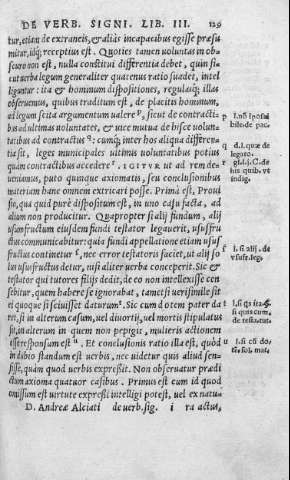 DE VERB. SIGNI. LIB. III. 129
tur, etiam de extraneis, & aliàs incapacibus egisse præsu
mitur, idq́; receptius est. Quoties tamen voluntas in ob=
scuro non est, nulla constitui differentia debet, quin si=
cut verba legum generaliter quatenus ratio suadet, intel
liguntur: ita & hominum dispositiones, regulasq́; illas
obseruemus, quibus traditum est, de placitis hominum,
ad legum scita argumentum ualere p, sicut de contracti=
bus ad ultimas voluntates, & uice mutua de hisce volun-
tatibus ad contractus q: cumq́; inter hos aliqua differen=
tia sit, leges municipales ultimis voluntatibus potius
quàm contractibus accedere r. IGITVR ut ad rem de=
ueniamus, puto quinque axiomatis, seu conclusionibus
materiam hanc omnem extricari posse. Prima est, Proui
sio, quæ quid purè dispositum est, in uno casu facta, ad
alium non producitur. Quapropter si alij fundum, alij
usumfructum eiusdem fundi testator legauerit, ususfru
ctus communicabitur: quia fundi appellatione etiam usus
fructus continetur s, nec error testatoris faciet, ut alij so
lus ususfructus detur, nisi aliter verba conceperit. Sic &
testator qui tutores filijs dedit, de eo non intellexisse cen
sebitur, quem habere se ignorabat, tametsi uerisimile sit
ei quoque si sciuisset daturum t. Sic cum dotem pater da
ret, si in alterum casum, uel diuortij, uel mortis stipulatus
sit, in alterum in quem non pepigit, mulieris actionem
esse responsum est u. Et conclusionis ratio illa est, quòd
in dibio standum est uerbis, nec uidetur quis aliud sen=
sisse, quàm quod uerbis expressit. Non obseruatur prædi
ctum axioma quatuor casibus. Primus est cum id quod
omissum est virtute expressi intelligi potest, uel ex natu=
D. Andreæ Alciati de uerb. sig. i ra actus,
p
bile de pac.
q d. l. quæ de
legato.
r
his quib. ut
indig.
s l. si alij. de
vsufr. leg.
t
si quis cum.
de testa. tut.
u
te. sol. mat.